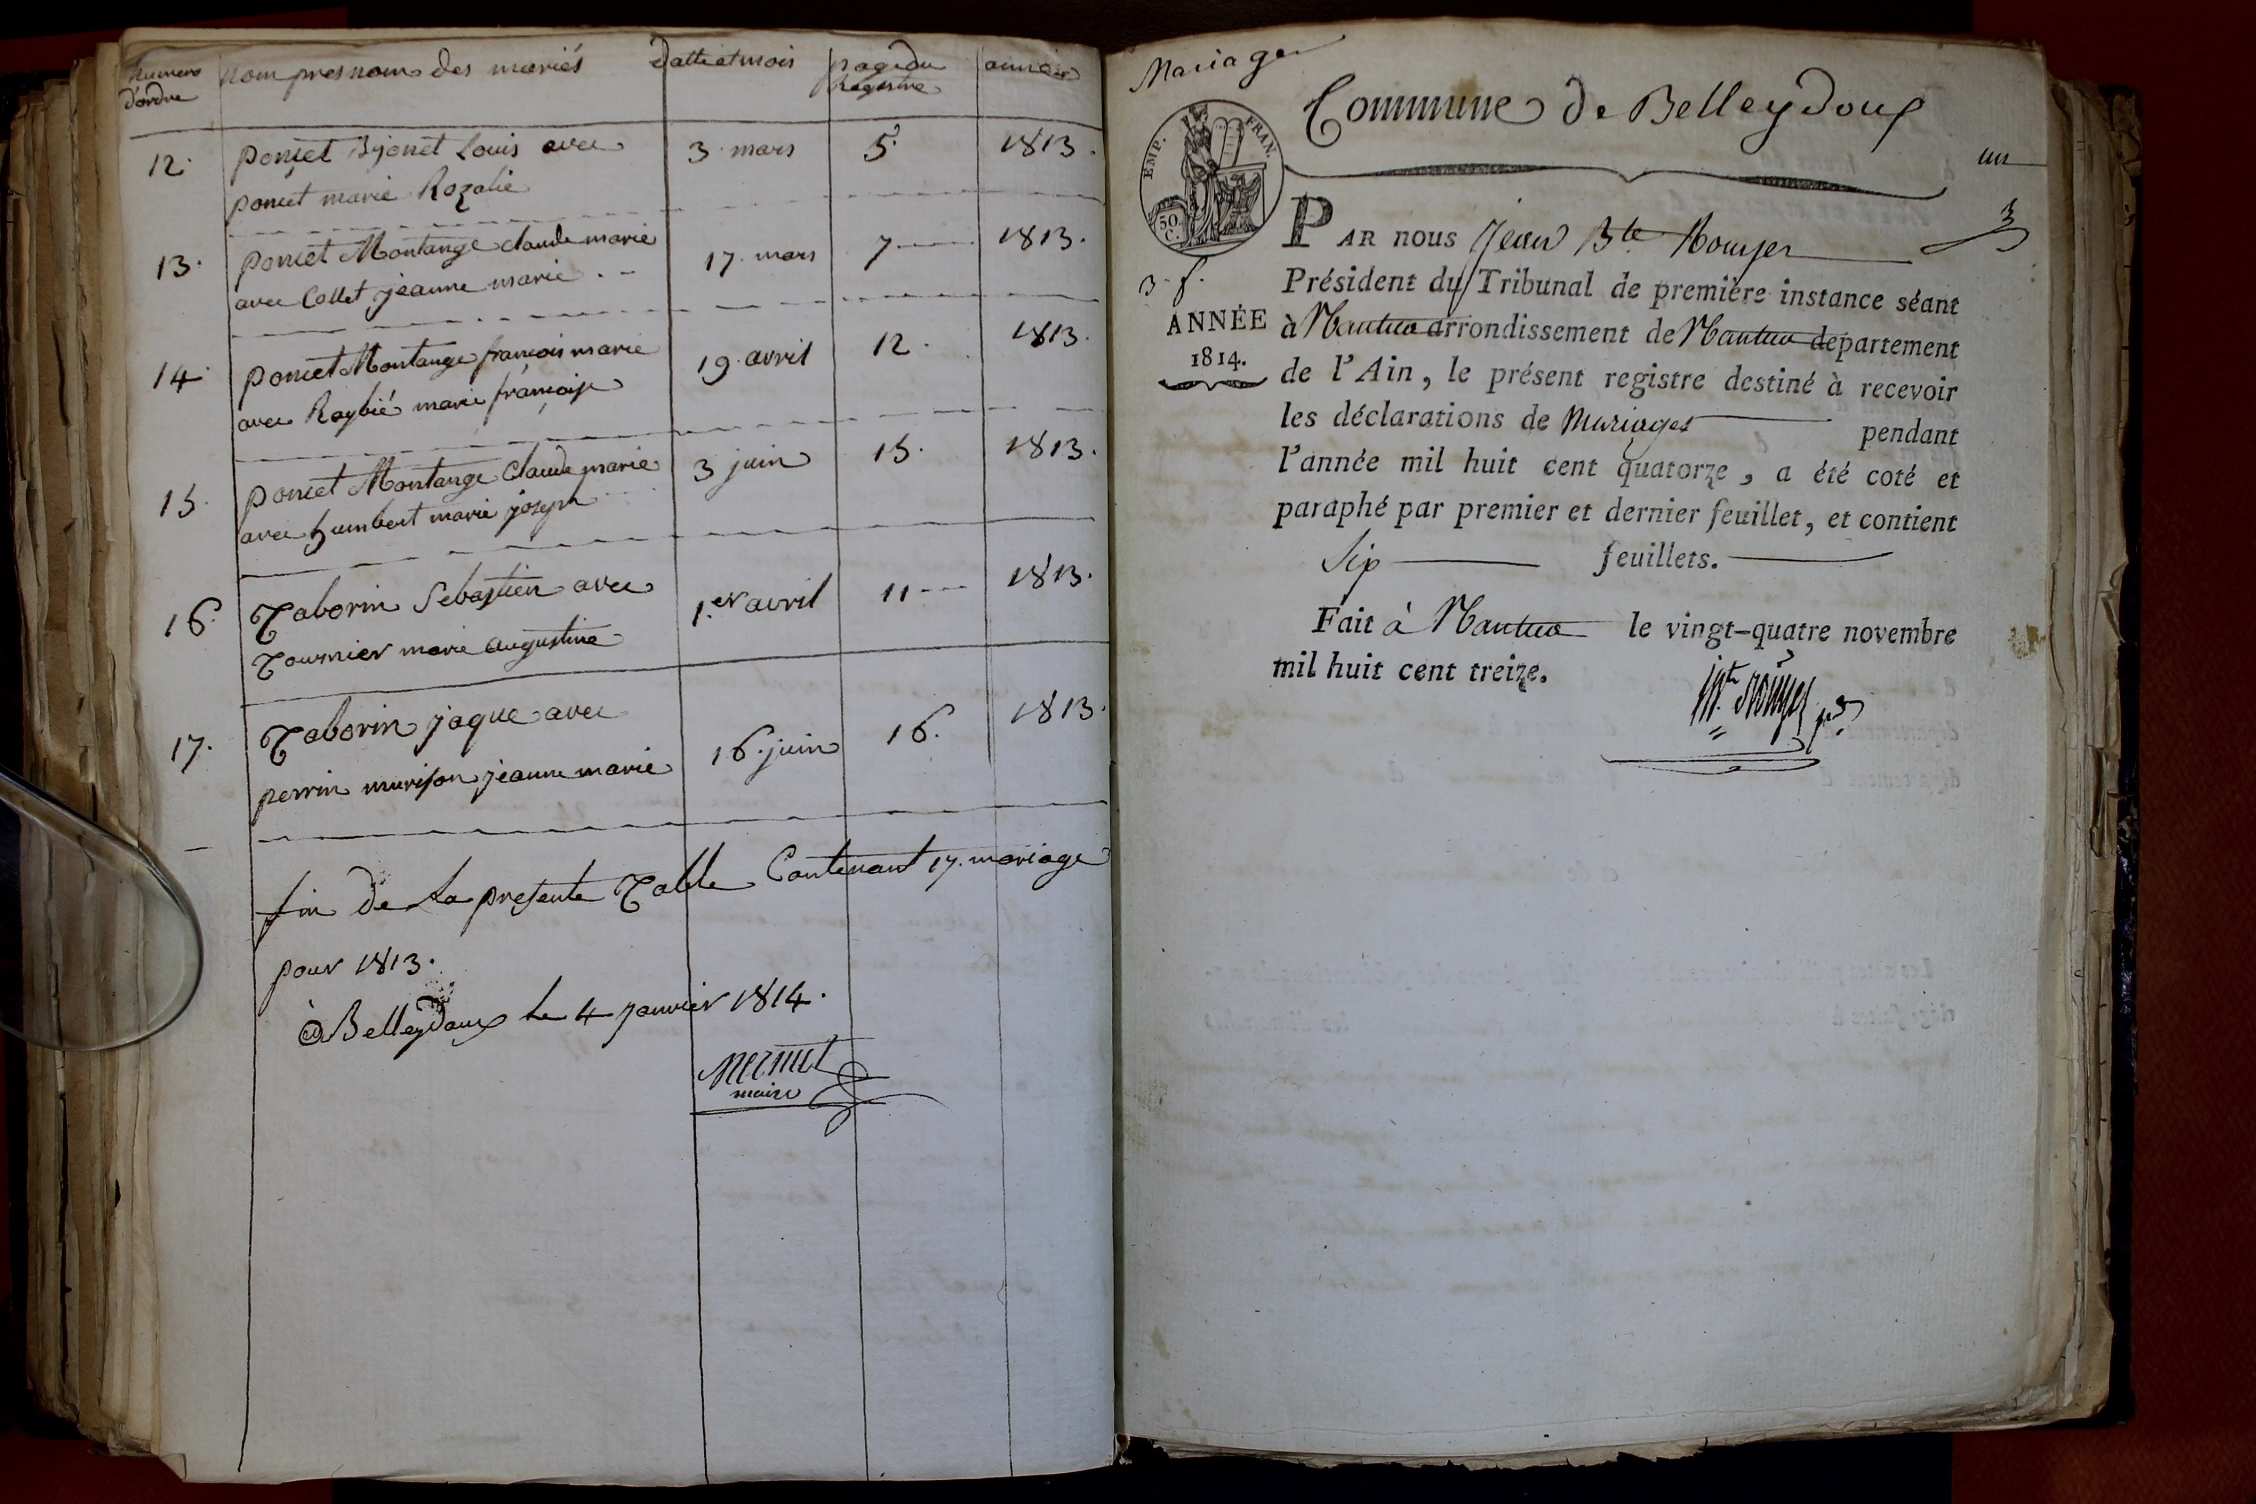 numero d'ordre
nom presnom des mariés
datte et mois
page du Registre
année
12.
poncet Bjonet Louis avec
poncet marie Rozalie
3. mars
5.
1813.
13.
poncet Montange claude marie
avec Collet jeanne marie.
17. mars
7
1813.
14.
poncet Montange francois marie
avec Raybié marie françoise
19. avril
12.
1813.
15.
poncet Montange Claude marie
avec humbert marie joseph
3 juin
15.
1813.
16.
Taborin Sebastien avec
Tournier marie augustine
1.er avril
11
1813.
17.
Taborin jaque avec
perrin murison jeanne marie
16. juin
16.
1813.
fin de La presente Table Contenant 17. mariage
pour 1813.
à Belleydoux Le 4 janvier 1814.
mermet
maire
Mariage
Commune de Belleydoux
un
EMP. FRAN.
50. C.
3. f.
ANNÉE
1814.
PAR nous Jean B.te Rouyer
Président du Tribunal de première instance séant
à Nantua arrondissement de Nantua departement
de l'Ain, le présent registre destiné à recevoir
les déclarations de Mariages pendant
l'année mil huit cent quatorze, a été coté et
paraphé par premier et dernier feuillet, et contient
Six feuillets.
Fait à Nantua le vingt-quatre novembre
mil huit cent treize.